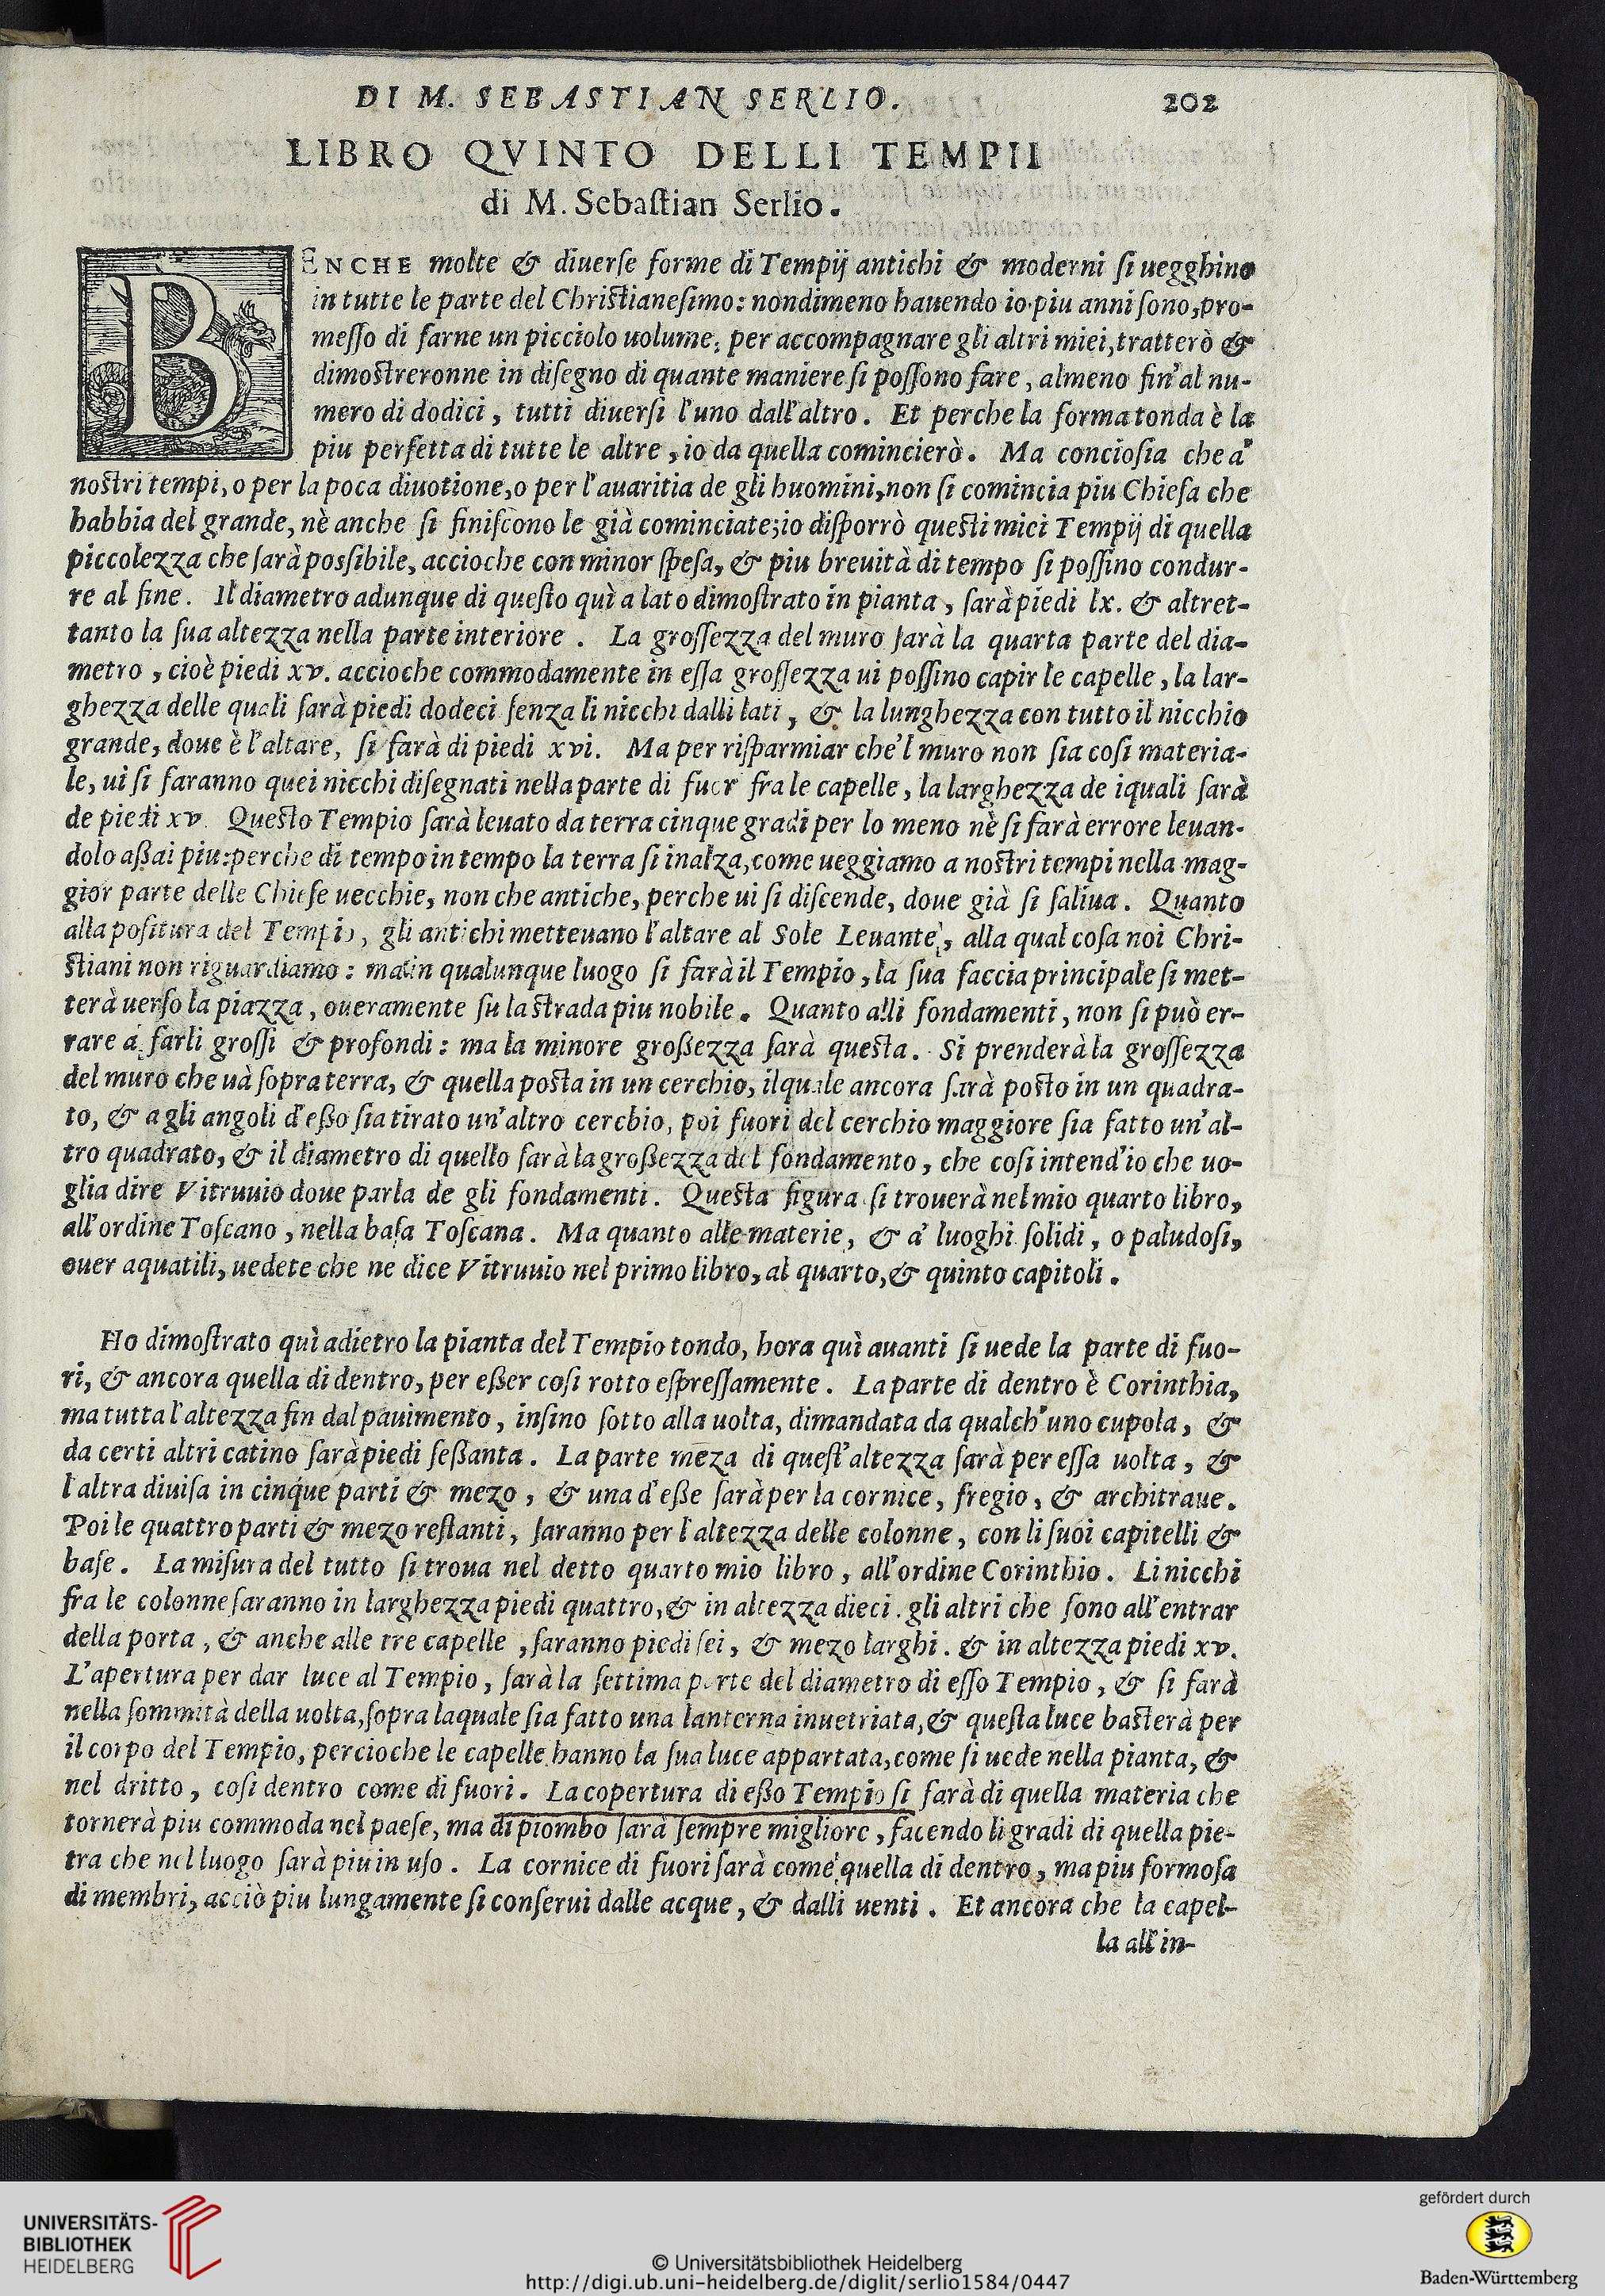 DI M. SEBASTIAN SERLIO. 202
LIBRO QVINTO DELLI TEMPII
di M. Sebaſtian Serlio.
BENCHE molte & diuerſe forme di Tempij antichi & moderni ſi uegghino
in tutte le parte del Chriſtianeſimo: nondimeno hauendo io piu anni ſono, pro-
meſſo di farne un picciolo uolume, per accompagnare gli altri miei, tratterò &
dimoſtreronne in diſegno di quante maniere ſi poſſono fare, almeno fin'al nu-
mero di dodici, tutti diuerſi l'uno dall'altro. Et perche la forma tonda è la
piu perfetta di tutte le altre, io da quella comincierò. Ma concioſia che a'
noſtri tempi, o per la poca diuotione, o per l'auaritia de gli huomini, non ſi comincia piu Chieſa che
habbia del grande, nè anche ſi finiſcono le già cominciate; io diſporrò queſti miei Tempij di quella
piccolezza che ſarà poſsibile, accioche con minor ſpeſa, & piu breuità di tempo ſi poſſino condur-
re al fine. Il diametro adunque di queſto quì a lato dimoſtrato in pianta, ſarà piedi lx. & altret-
tanto la ſua altezza nella parte interiore. La groſſezza del muro ſarà la quarta parte del dia-
metro, cioè piedi xv. accioche commodamente in eſſa groſſezza ui poſſino capir le capelle, la lar-
ghezza delle quali ſarà piedi dodeci ſenza li nicchi dalli lati, & la lunghezza con tutto il nicchio
grande, doue è l'altare, ſi farà di piedi xvi. Ma per riſparmiar che'l muro non ſia coſi materia-
le, ui ſi faranno quei nicchi diſegnati nella parte di fuor fra le capelle, la larghezza de iquali ſarà
de piedi xv. Queſto Tempio ſarà leuato da terra cinque gradi per lo meno nè ſi farà errore leuan-
dolo aßai piu: perche di tempo in tempo la terra ſi inalza, come ueggiamo a noſtri tempi nella mag-
gior parte delle Chieſe uecchie, non che antiche, perche ui ſi diſcende, doue già ſi ſaliua. Quanto
alla poſitura del Tempio, gli antichi metteuano l'altare al Sole Leuante, alla qual coſa noi Chri-
ſtiani non riguardiamo: ma in qualunque luogo ſi farà il Tempio, la ſua faccia principale ſi met-
terà uerſo la piazza, oueramente ſu la ſtrada piu nobile. Quanto alli fondamenti, non ſi può er-
rare a farli groſſi & profondi: ma la minore großezza ſarà queſta. Si prenderà la groſſezza
del muro che uà ſopra terra, & quella poſta in un cerchio, ilquale ancora ſarà poſto in un quadra-
to, & a gli angoli d'eßo ſia tirato un'altro cerchio, poi fuori del cerchio maggiore ſia fatto un'al-
tro quadrato, & il diametro di quello ſarà la großezza del fondamento, che coſi intend'io che uo-
glia dire Vitruuio doue parla de gli fondamenti. Queſta figura ſi trouerà nel mio quarto libro,
all'ordine Toſcano, nella baſa Toſcana. Ma quanto alle materie, & a' luoghi ſolidi, o paludoſi,
ouer aquatili, uedete che ne dice Vitruuio nel primo libro, al quarto, & quinto capitoli.
Ho dimoſtrato quì adietro la pianta del Tempio tondo, hora quì auanti ſi uede la parte di fuo-
ri, & ancora quella di dentro, per eßer coſi rotto eſpreſſamente. La parte di dentro è Corinthia,
ma tutta l'altezza fin dal pauimento, inſino ſotto alla uolta, dimandata da qualch'uno cupola, &
da certi altri catino ſarà piedi ſeßanta. La parte mēza di queſt'altezza ſarà per eſſa uolta, &
l'altra diuiſa in cinque parti & mezo, & una d'eße ſarà per la cornice, fregio, & architraue.
Poi le quattro parti & mezo reſtanti, ſaranno per l'altezza delle colonne, con li ſuoi capitelli &
baſe. La miſura del tutto ſi troua nel detto quarto mio libro, all'ordine Corinthio. Li nicchi
fra le colonne ſaranno in larghezza piedi quattro, & in altezza dieci. gli altri che ſono all'entrar
della porta, & anche alle tre capelle, ſaranno piedi ſei, & mezo larghi. & in altezza piedi xv.
L'apertura per dar luce al Tempio, ſarà la ſettima parte del diametro di eſſo Tempio, & ſi farà
nella ſommità della uolta, ſopra laquale ſia fatto una lanterna inuetriata, & queſta luce baſterà per
il corpo del Tempio, percioche le capelle hanno la ſua luce appartata, come ſi uede nella pianta, &
nel dritto, coſi dentro come di fuori. La copertura di eßo Tempio ſi farà di quella materia che
tornerà piu commoda nel paeſe, ma di piombo ſarà ſempre migliore, facendo li gradi di quella pie-
tra che nel luogo ſarà piu in uſo. La cornice di fuori ſarà come quella di dentro, ma piu formoſa
di membri, acciò piu lungamente ſi conſerui dalle acque, & dalli uenti. Et ancora che la capel-
la all'in-
UNIVERSITÄTS-
BIBLIOTHEK
HEIDELBERG
© Universitätsbibliothek Heidelberg
http://digi.ub.uni-heidelberg.de/diglit/serlio1584/0447
gefördert durch
Baden-Württemberg